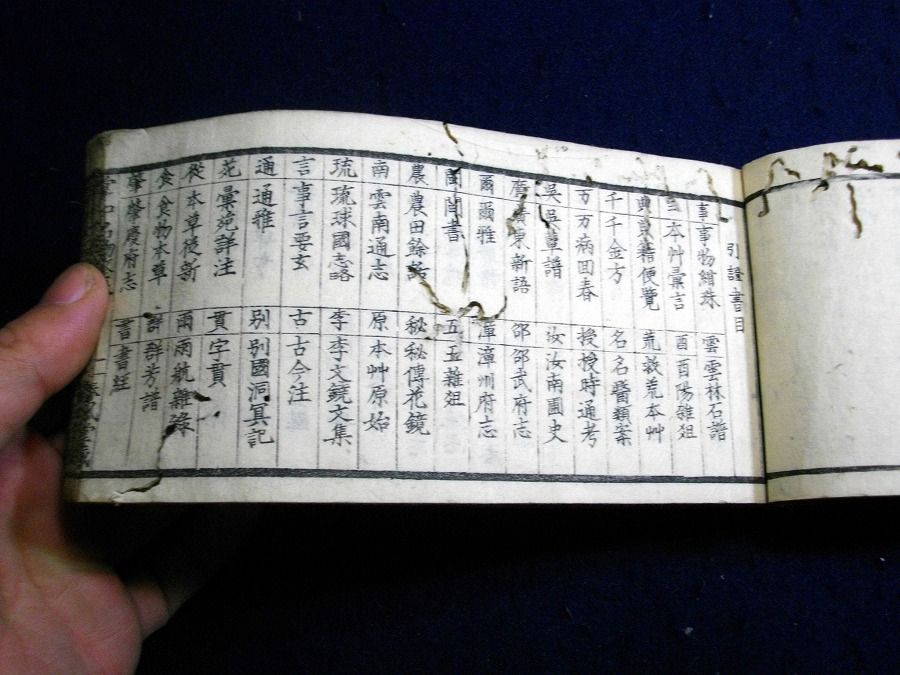 引證書目
事 事物紺珠
雲 雲林石譜
本艸彙言
酉 酉陽雜爼
典 典籍便覽
荒 救荒本艸
千 千金方
名 名醫類案
万 万病回春
授 授時通考
吳 吳草譜
汝 汝南圃史
廣 廣東新語
邵 邵武府志
爾 爾雅
漳 漳州府志
閩 閩書
五 五雜爼
農 農田餘話
秘 秘傳花鏡
南 雲南通志
原 本艸原始
琉 琉球國志略
李 李文鏡文集
言 事言要玄
古 古今注
通 通雅
別 別國洞冥記
花 彙苑詳注
貫 字貫
從 本草從新
雨 雨航雜錄
食 食物本草
群 群芳譜
肇 肇慶府志
書 書經